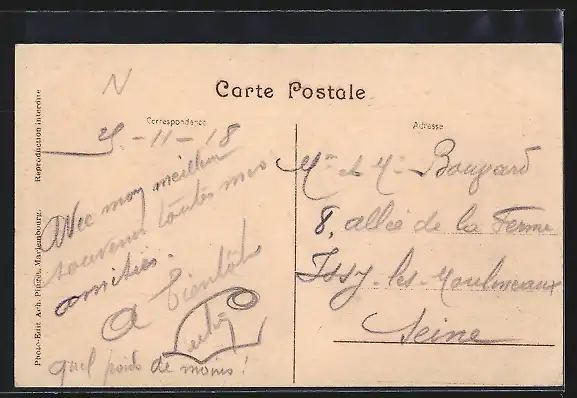 N
Carte Postale
Correspondance
Adresse
-11-18
Avec mon meilleur
souvenir toutes mes
amitiés.
A bientôt
quel poids de moins !
Mr et Mme Bougard
8, allée de la Ferme
Issy-les-Moulineaux
Seine
Photo-Edit. Ach. Piette, Mariembourg. Reproduction interdite